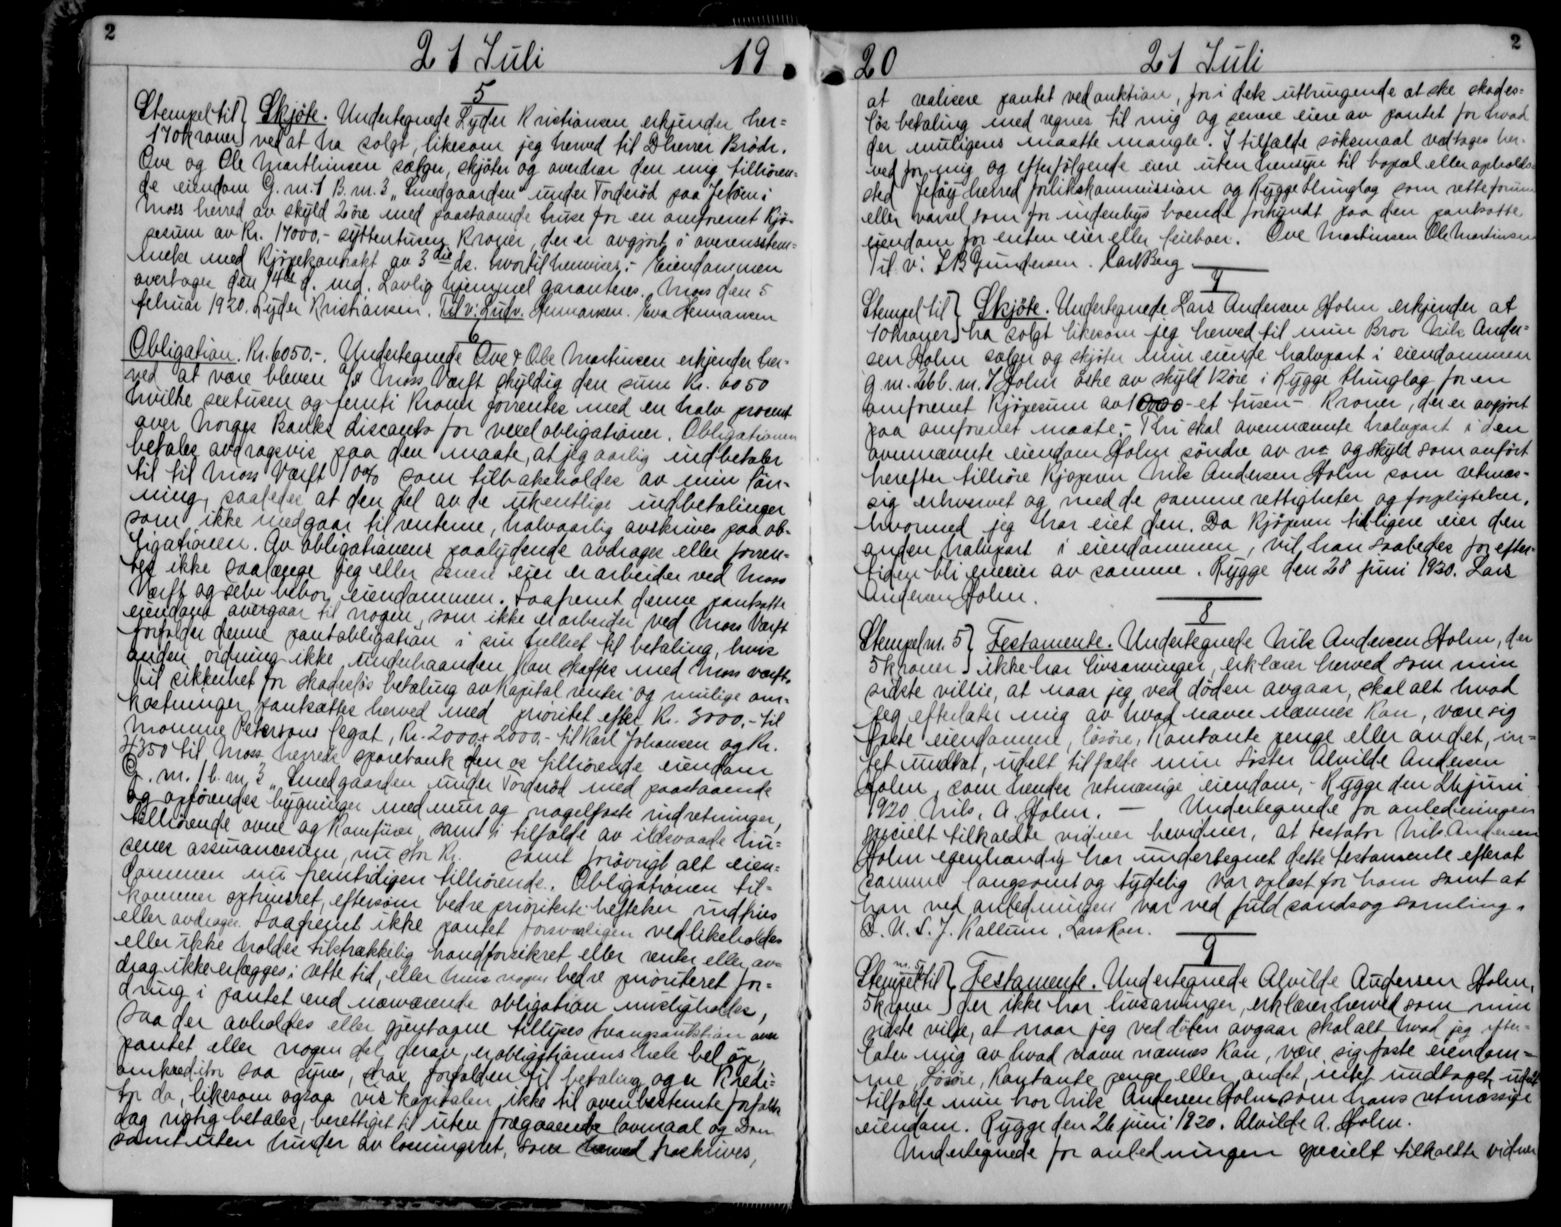 2
21 Juli 19
5
Stempel til } Skjöte. Undertegnede Lyder Kristiansen erkjender her=
170 kroner } ved at ha solgt, likesom jeg herved til D'herrer Brödr.
Ove og Ole Marthinsen sælger, skjöter og overdrar den mig tilhören-
de eiendom G. nr. 1 B. nr. 3 „Smedgaarden" under Torderöd paa Jelöen i
Moss herred av skyld 2 öre med paastaaende huse for en omforenet Kjö-
pesum av Kr. 17000,- syttentusen Kroner, der er avgjort i overensstem=
melse med Kjöpekontrakt av 3die ds. hvortil henvises.- Eiendommen
overtages den 14de d. md. Lovlig hjemmel garanteres. Moss den 5
februar 1920. Lyder Kristiansen. Til v: Ludv. Hermansen. Eva Hermansen
6
Obligation. Kr. 6050.-. Undertegnede Ove & Ole Martinsen erkjender her-
ved at være bleven A/S Moss Værft skyldig den sum Kr. 6050
hvilke sextusen og femti Kroner forrentes med en halv procent
over Norges Banks discanto for vexelobligationer. Obligationen
betales avdragsvis paa den maate, at jeg aarlig indbetaler
til til Moss Værft 10% som tilbakeholdes av min lön-
ning, saaledes at den del av de ukentlige indbetalinger
som ikke medgaar til renterne, halvaarlig avskrives paa ob-
ligationen. Av obligationens paalydende avdrages eller forren-
tes ikke saalænge jeg eller senere eier er arbeider ved Moss
Værft og selv bebor eiendommen. Saafremt denne pantsatte
eiendom overgaar til nogen, som ikke er arbeider ved Moss Værft
forfalder denne pantobligation i sin helhet til betaling, hvis
anden ordning ikke underhaanden kan skaffes med Moss værft.
Til sikkerhet for skadeslös betaling av kapital renter og mulige om-
kostninger pantsættes herved med prioritet efter Kr. 3000,- til
Momme Petersons legat, Kr. 2000,+ 2000,- til Karl Johansen og Kr.
4350 til Moss herreds sparebank den os tilhörende eiendom
G. nr. 1 b. nr. 3 „Smedgaarden under Torderöd med paastaaende
og opförendes bygninger med mur og nagelfaste indretninger,
tilhörende ovne og Komfurer, samt i tilfælde av ildsvaade hu=
senes assurancesum, nu stor Kr. samt forövrigt alt eien-
dommen nu fremtidigen tilhörende. Obligationen til-
kommer optrinsret, eftersom bedre prioriterte heftelser indfries
eller avdrages. Saafremt ikke pantet forsvarligen vedlikeholdes
eller ikke holdes tilstrækkelig brandforsikret eller renter eller av-
drag ikke erlægges i rette tid, eller hvis nogen bedre prioriteret for=
dring i pantet end nærværende obligation misligholdes,
saa der avholdes eller gjentagne tillyses tvangsauktion over
pantet eller nogen del derav, er obligationens hele belöp,
om kreditor saa synes, strax forfalden til betaling og er Kredi=
tor da, likesom ogsaa hvis kapitalen ikke til ovenbestemte forfalds
dag rigtig betales, berettiget til uten foregaaende lovmaal og Dom
samt uten hinder av losningsret, som herved frasktives,
2
20 21 Juli
at realisere pantet ved auktion, fori dets utbringende at ske skades=
lös betaling med regnes til mig og senere eiere av pantet for hvad
der muligens maatte mangle. I tilfælde söksmaal vedtages her-
ved for mig og efterfölgende eiere uten hensyn til bopæl eller opholds-
sted Jelöy herred forlikskommission og Rygge thinglag som retteforum
eller varsel som for indenbys boende forkyndt paa den pantsatte
eiendom for enten eier eller leieboer. Ove Martinsen Ole Martinsen
Til v: L B Gundersen. Carl Berg
7
Stempel til } Skjöte. Undertegnede Lars Andersen Holm erkjender at
10 kroner } ha solgt likesom jeg herved til min Bror Nils Ander-
sen Holm sælger og skjöter min eiende halvpart i eiendommen
g. nr. 26 b. nr. 7 Holm östre av skyld 12 öre i Rygge thinglag for en
omforenet Kjöpesum av 1000 - et tusen - Kroner, der er avgjort
paa omforenet maate.- Thi skal ovennævnte halvpart i den
ovennævnte eiendom Holm söndre av nr. og skyld som anfört
herefter tilhöre Kjöperen Nils Andersen Holm som retmæs-
sig erhvervet og med de samme rettigheter og forpligtelser,
hvormed jeg har eiet den. Da kjöperen tidligere eier den
anden halvpart i eiendommen, vil han saaledes for efter-
tiden bli eneeier av samme. Rygge den 28 juni 1920. Lars
Andersen Holm.
8
Stempel nr. 5 } Testamente. Undertegnede Nils Andersen Holm, der
5 kroner } ikke har livsarvinger, erklærer herved som min
sidste villie, at naar jeg ved döden avgaar, skal alt hvad
jeg efterlater mig av hvad navn nævnes kan, være sig
faste eiendomme, lösöre, kontante penge eller andet, in-
tet undtat, udelt tilfalde min söster Alvilde Andersen
Holm som hendes retmæssige eiendom,- Rygge den 26 juni
1920. Nils. A. Holm. — Undertegnede for anledningen
specielt tilkaldte vidner bevidner, at testator Nils Andersen
Holm egenhændig har undertegnet dette testamente efterat
samme langsomt og tydelig var oplæst for ham samt at
han ved anledningen var ved fuld sands og samling.
D. U. S. J. Kallum, Lars Roer.
9
nr. 5
Stempel til } Testamente. Undertegnede Alvilde Andersen Holm,
5 kroner } der ikke har livsarvinger, erklærer herved som min
sidste vilje, at naar jeg ved döden avgaar skal alt hvad jeg efter-
later mig av hvad navn nævnes kan, være sig faste eiendom=
me, lösöre, kontante penge eller andet, intet undtaget, udelt
tilfalde min bror Nils Andersen Holm som hans retmæssige
eiendom. Rygge den 26 juni 1920. Alvilde A. Holm.
Undertegnede for anledningen specielt tilkaldte vidner